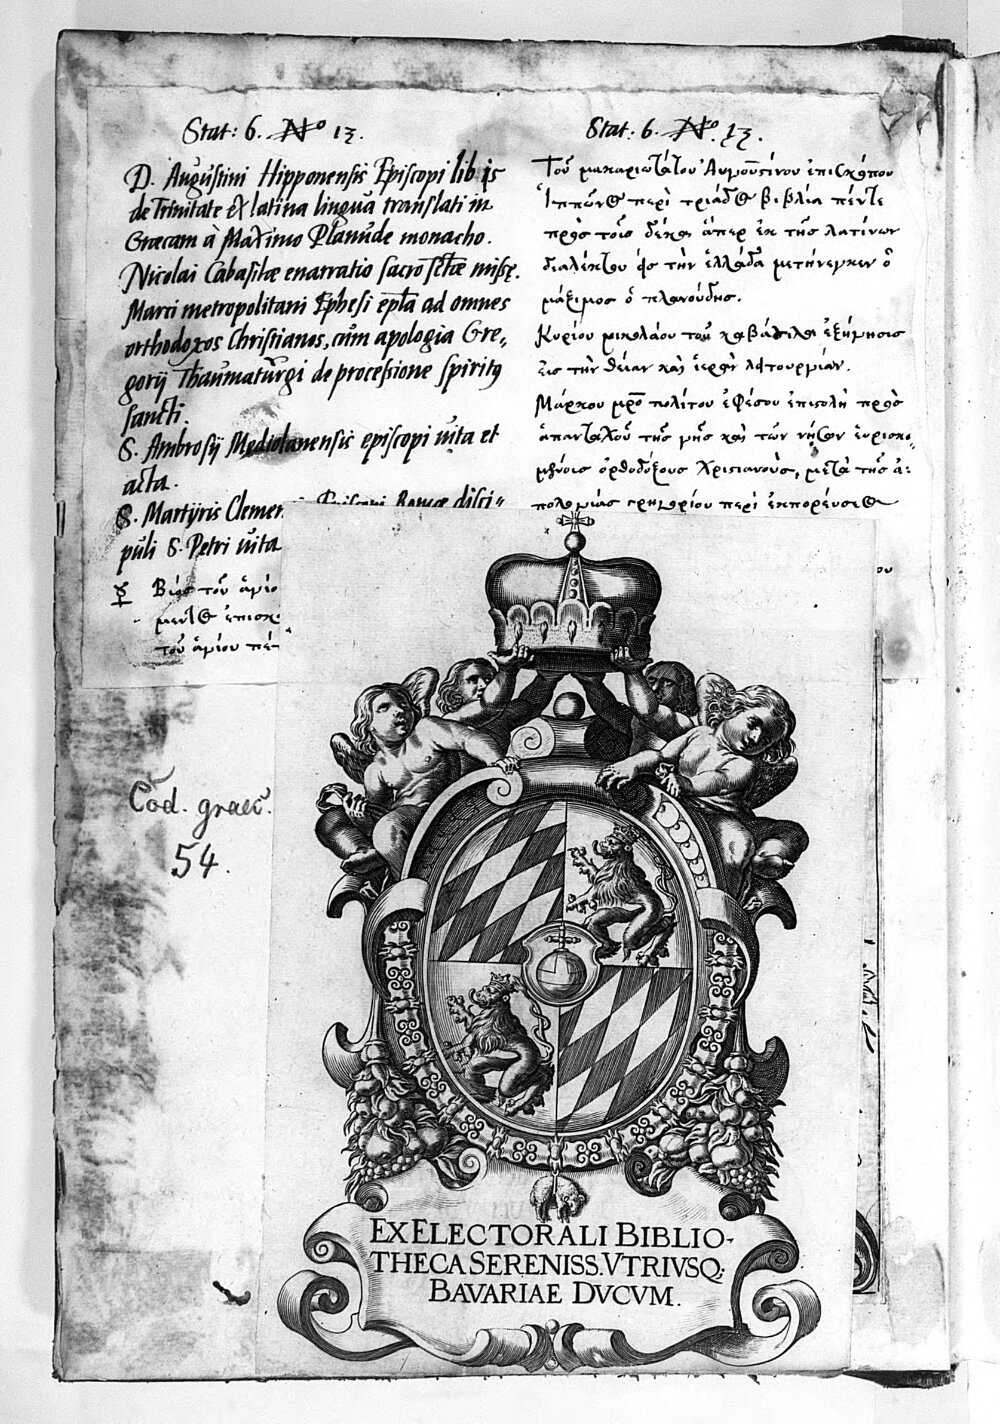 Stat: 6. Nº 13.
D. Augustini Hipponensis Episcopi lib is
de Trinitate ex latina lingua translati in
Græcam à Maximo Planude monacho.
Nicolai Cabasilæ enarratio sacrosctæ missę.
Marci metropolitani Ephesi epla ad omnes
orthodoxos Christianos, cum apologia Gre,,
gorij Thaumaturgi de processione spiritꝰ
sancti.
S. Ambrosij Mediolanensis episcopi uita et
acta.
S. Martyris Clemen Episcopi Romæ disci,,
puli S. Petri uita
Βίος τοῦ ἁγίο
μεντος ἐπισκ
τοῦ ἁγίου πέ
Stat: 6. Nº. 13.
Τοῦ μακαριωτάτου Αὐγουστίνου ἐπισκόπου
Ἱππῶνος περὶ τριάδος βιβλία πέντε
πρὸς τοῖς δέκα ἅπερ ἐκ τῆς λατίνων
διαλέκτου εἰς τὴν ἑλλάδα μετήνεγκεν ὁ
μάξιμος ὁ πλανούδης.
Κυρίου νικολάου τοῦ καβάσιλα ἐξήγησις
εἰς τὴν θείαν καὶ ἱερὰν λειτουργίαν.
Μάρκου μρο πολίτου ἐφέσου ἐπιστολὴ πρὸς
ἁπανταχοῦ τῆς γῆς καὶ τῶν νήσων εὑρισκο,,
μένοις ὀρθοδόξους Χριστιανούς, μετὰ τῆς ἀ:
πολογίας γρηγορίου περὶ ἐκπορεύσεως
ου
Cod. graec.
54.
EX ELECTORALI BIBLIO-
THECA SERENISS. VTRIVSQ;
BAVARIAE DVCVM.